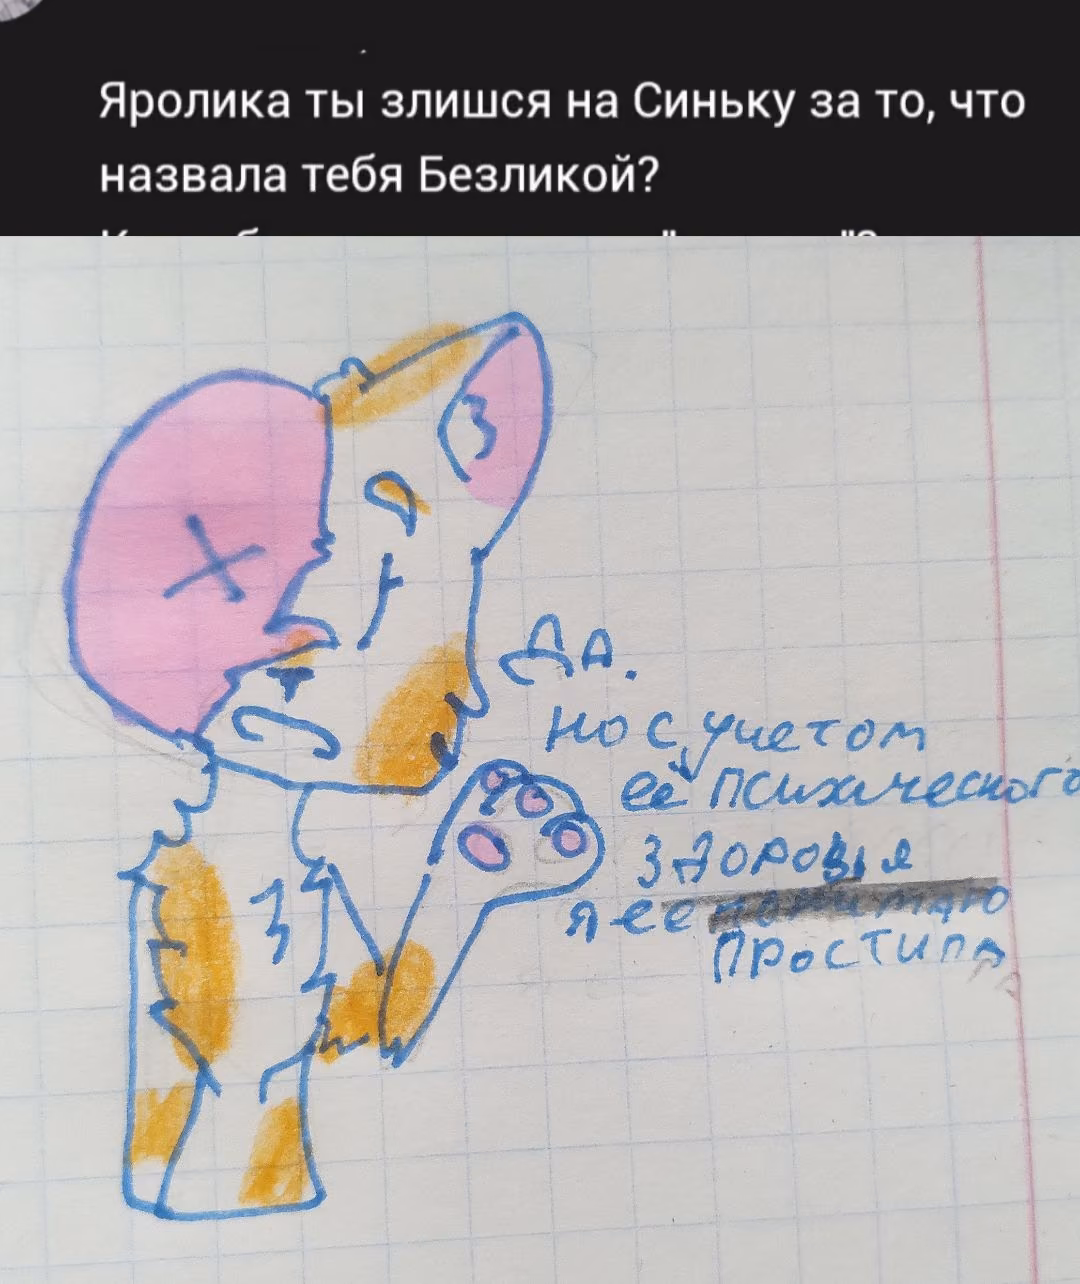 Яролика ты злишся на Синьку за то, что
назвала тебя Безликой?
Да.
но с учетом
её психического
здоровья
я ее
простила